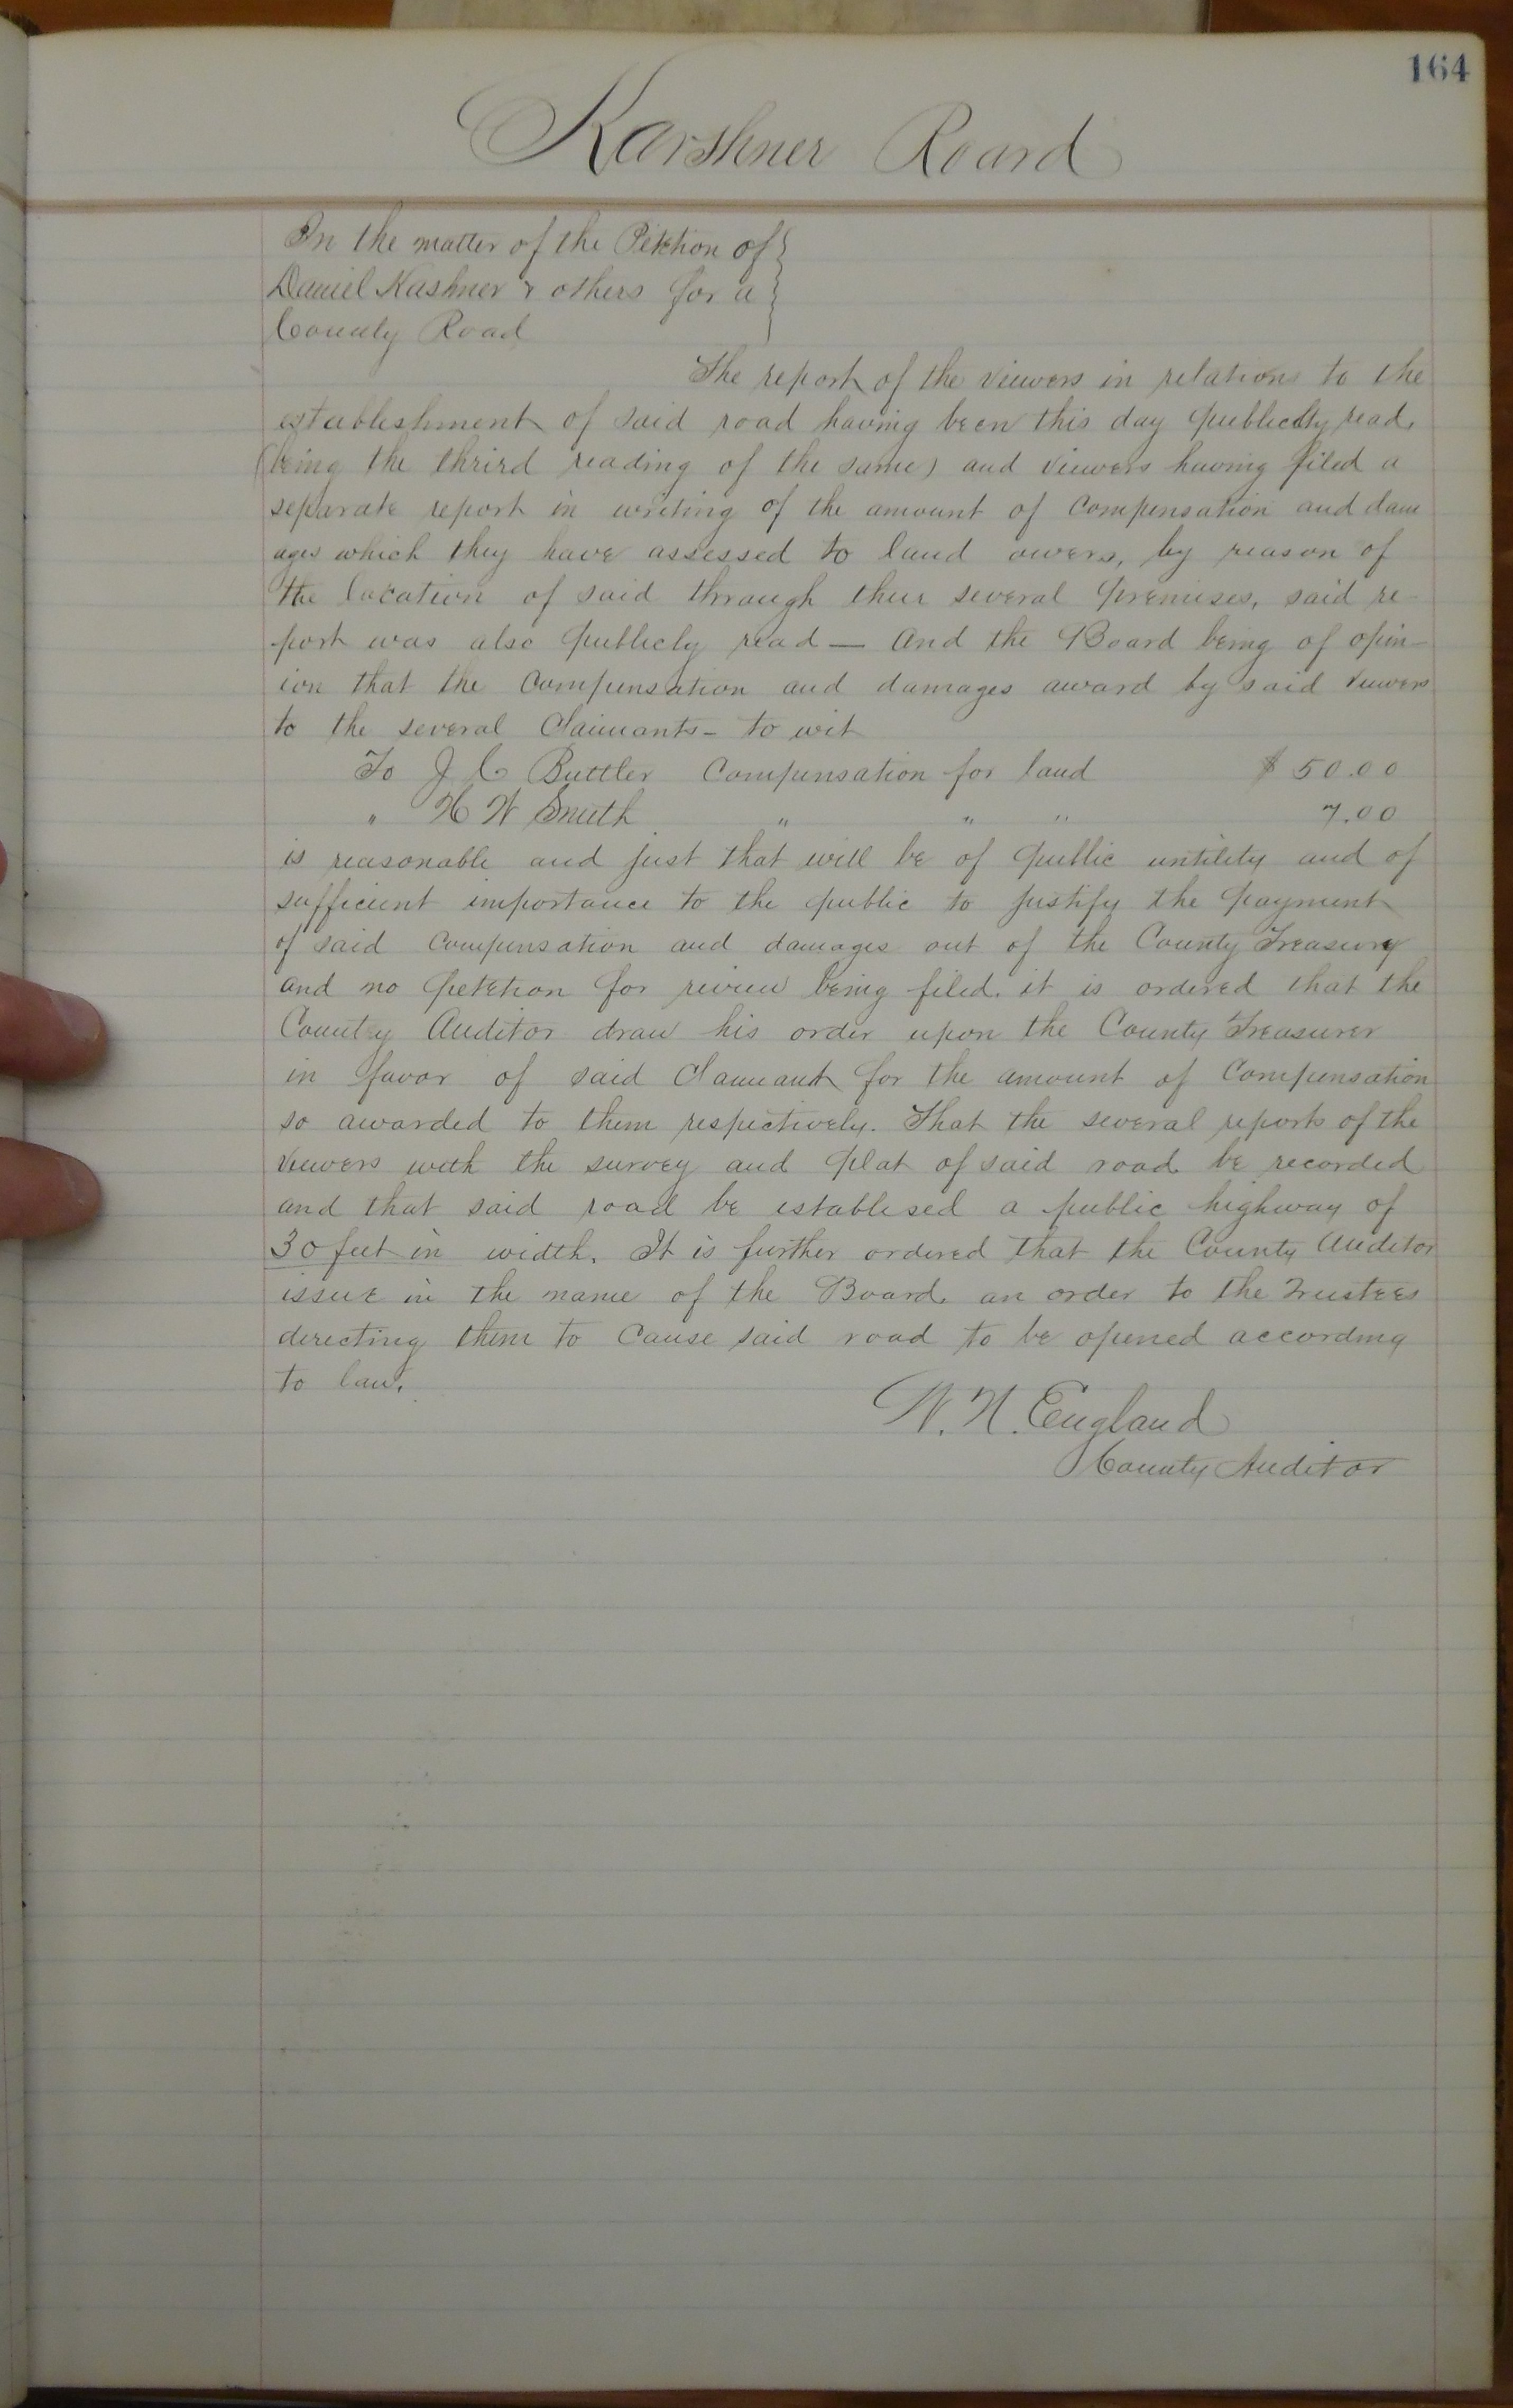 164
Karshner Road
In the matter of the Petition of
Daniel Kashner & others for a
County Road
The report of the viewers in relations to the
establishment of said road having been this day publiclly read,
(being the thrird reading of the same) and viewers having filed a
separate report in writing of the amount of compensation and dam
ages which they have assessed to land owers, by reason of
the location of said through their several premises, said re-
port was also publicly read — And the Board being of opin-
ion that the compensation and damages award by said viewers
to the several Claimants - to wit
To J C Buttler Compensation for land $ 50.00
" H W Smith " " " 7.00
is reasonable and just that will be of public untility and of
sufficient importance to the public to justify the payment
of said compensation and damages out of the County Treasury
and no petetion for review being filed. it is ordered that the
County Auditor draw his order upon the County Treasurer
in favor of said Claimant for the amount of Compensation
so awarded to them respectively. That the several reports of the
viewers with the survey and plat of said road be recorded
and that said road be establised a public highway of
30 feet in width. It is further ordered that the County Auditor
issue in the name of the Board an order to the Trustees
directing them to cause said road to be opened according
to law.
W. H. England
County Auditor